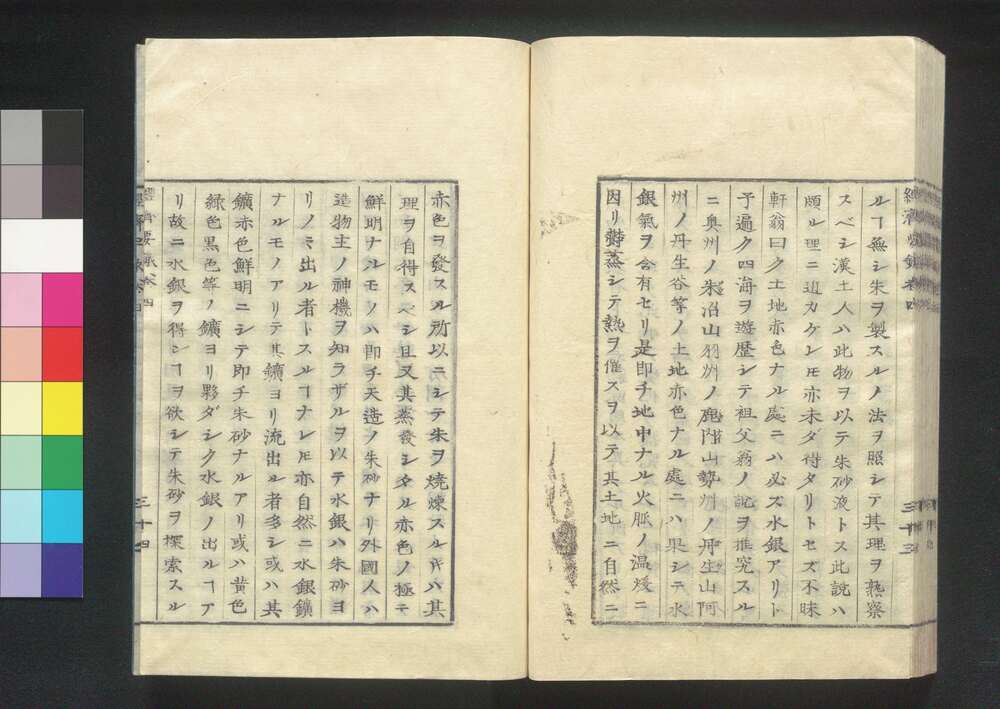 經濟要録卷四
三十三
ルヿ無シ朱ヲ製スルノ法ヲ照シテ其理ヲ熟察
スベシ漢土人ハ此物ヲ以テ朱砂液トス此説ハ
頗ル理ニ近カケレ𪜈亦未ダ得タリトセズ不昧
軒翁曰ク土地赤色ナル處ニハ必ズ水銀アリト
予遍ク四海ヲ遊歷シテ祖父翁ノ説ヲ推究スル
ニ奥州ノ朱沼山羽州ノ鹿内山勢州ノ丹生山阿
州ノ丹生谷等ノ土地赤色ナル處ニハ果シテ水
銀氣ヲ含有セリ是即チ地中ナル火脈ノ温煖ニ
因リ欝蒸シテ熱ヲ催スヲ以テ其土地ニ自然ニ
赤色ヲ發スル所以ニシテ朱ヲ燒煉スルキハ其
理ヲ自得スベシ且又其蒸發シタル赤色ノ極テ
鮮明ナルモノハ即チ天造ノ朱砂ナリ外國人ハ
造物主ノ神機ヲ知ラザルヲ以テ水銀ハ朱砂ヨ
リノミ出ル者トスルヿナレ𪜈亦自然ニ水銀鑛
ナルモノアリテ其鑛ヨリ流出ル者多シ或ハ其
鑛赤色鮮明ニシテ即チ朱砂ナルアリ或ハ黄色
緑色黒色等ノ鑛ヨリ夥ダシク水銀ノ出ルヿア
リ故ニ水銀ヲ得ンヿヲ欲シテ朱砂ヲ探索スル
經濟要録卷四
三十四